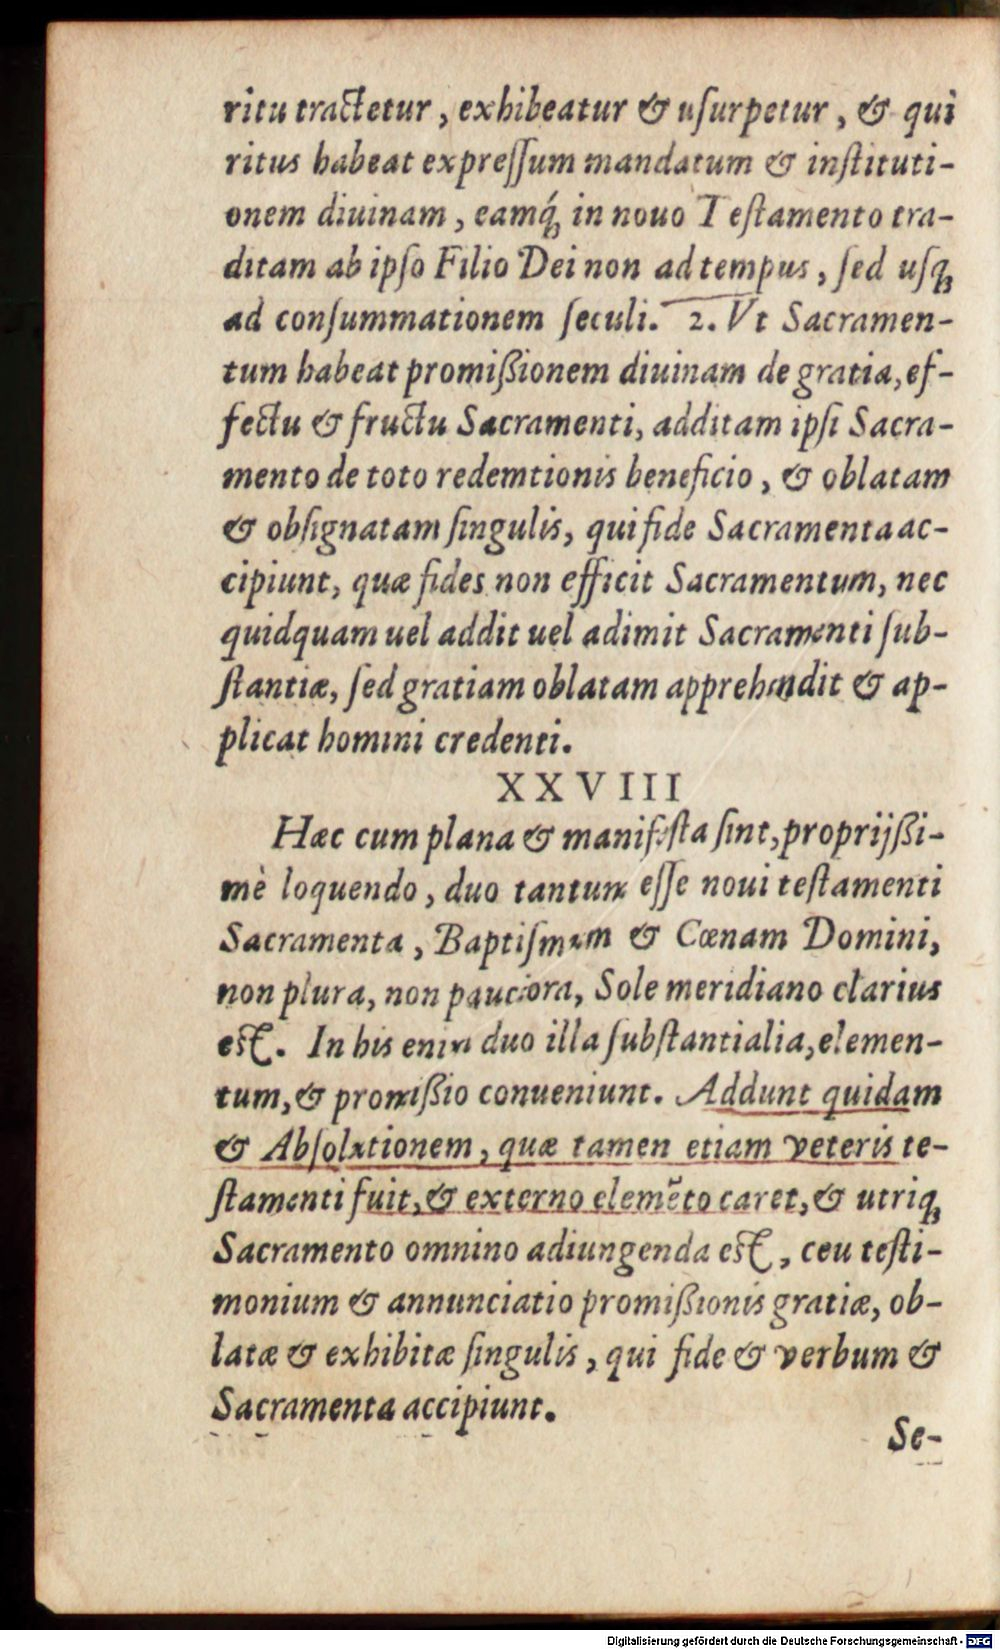 ritu tractetur, exhibeatur & uſurpetur, & qui
ritus habeat expreſſum mandatum & inſtituti-
onem diuinam, eamq́ꝫ in nouo Teſtamento tra-
ditam ab ipſo Filio Dei non ad tempus, ſed uſqꝫ
ad conſummationem ſeculi. 2. Vt Sacramen-
tum habeat promißionem diuinam de gratia, ef-
fectu & fructu Sacramenti, additam ipſi Sacra-
mento de toto redemtionis beneficio, & oblatam
& obſignatam ſingulis, qui fide Sacramenta ac-
cipiunt, quæ fides non efficit Sacramentum, nec
quidquam uel addit uel adimit Sacramenti ſub-
ſtantiæ, ſed gratiam oblatam apprehendit & ap-
plicat homini credenti.
XXVIII
Hæc cum plana & manifeſta ſint, proprijßi-
mè loquendo, duo tantum eſſe noui teſtamenti
Sacramenta, Baptiſmum & Cœnam Domini,
non plura, non pauciora, Sole meridiano clarius
eſt. In his enim duo illa ſubſtantialia, elemen-
tum, & promißio conueniunt. Addunt quidam
& Abſolutionem, quæ tamen etiam veteris te-
ſtamenti fuit, & externo elemẽto caret, & utriqꝫ
Sacramento omnino adiungenda eſt, ceu teſti-
monium & annunciatio promißionis gratiæ, ob-
latæ & exhibitæ ſingulis, qui fide & verbum &
Sacramenta accipiunt.
Se-
Digitalisierung gefördert durch die Deutsche Forschungsgemeinschaft - DFG